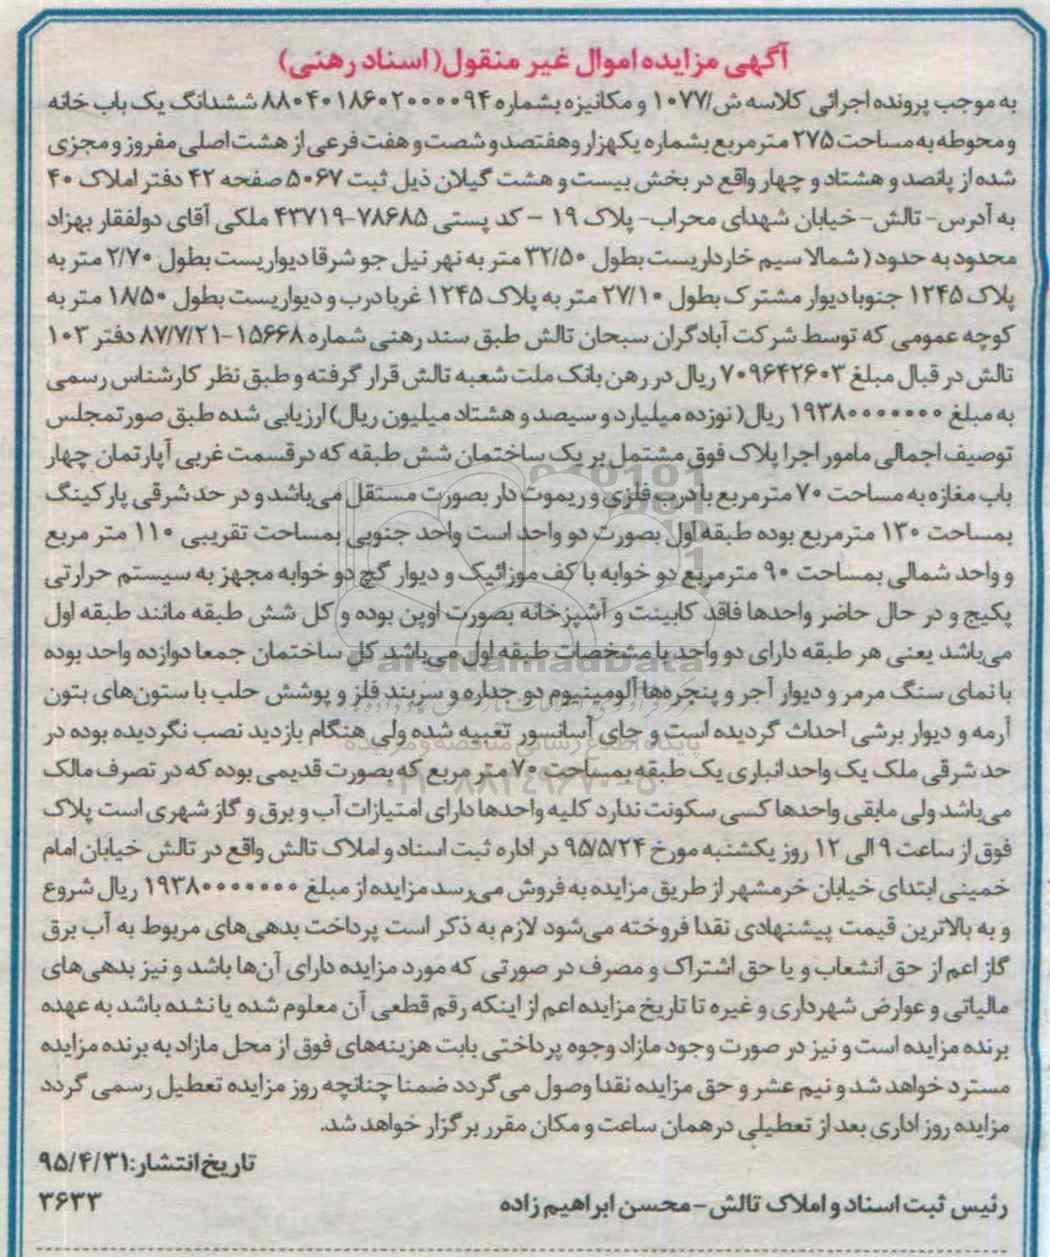 آگهی مزایده اموال غیر منقول(اسناد رهنی)
به موجب پرونده اجرائی کلاسه ش/۱۰۷۷ و مکانیزه بشماره ۸۸۰۴۰۱۸۶۰۲۰۰۰۰۹۴ ششدانگ یک باب خانه
و محوطه به مساحت ۲۷۵ مترمربع بشماره یکهزار وهفتصد و شصت و هفت فرعی از هشت اصلی مفروز و مجزی
شده از پانصد و هشتاد و چهار واقع در بخش بیست و هشت گیلان ذیل ثبت ۵۰۶۷ صفحه ۴۲ دفتر املاک ۴۰
به آدرس- تالش- خیابان شهدای محراب- پلاک ۱۹ – کد پستی ۷۸۶۸۵-۴۳۷۱۹ ملکی آقای دولفقار بهزاد
محدود به حدود ( شمالا سیم خارداریست بطول ۳۲/۵۰ متر به نهر نیل جو شرقا دیواریست بطول ۲/۷۰ متر به
پلاک ۱۲۴۵ جنوبا دیوار مشترک بطول ۲۷/۱۰ متر به پلاک ۱۲۴۵ غربا درب و دیواریست بطول ۱۸/۵۰ متر به
کوچه عمومی که توسط شرکت آبادگران سبحان تالش طبق سند رهنی شماره ۱۵۶۶۸-۸۷/۷/۲۱ دفتر ۱۰۳
تالش در قبال مبلغ ۷۰۹۶۴۲۶۰۳ ریال در رهن بانک ملت شعبه تالش قرار گرفته و طبق نظر کارشناس رسمی
به مبلغ ۱۹۳۸۰۰۰۰۰۰۰ ریال( نوزده میلیارد و سیصد و هشتاد میلیون ریال) ارزیابی شده طبق صورتمجلس
توصیف اجمالی مامور اجرا پلاک فوق مشتمل بر یک ساختمان شش طبقه که درقسمت غربی آپارتمان چهار
باب مغازه به مساحت ۷۰ مترمربع با درب فلزی و ریموت دار بصورت مستقل می‌باشد و در حد شرقی پارکینگ
بمساحت ۱۳۰ مترمربع بوده طبقه اول بصورت دو واحد است واحد جنوبی بمساحت تقریبی ۱۱۰ متر مربع
و واحد شمالی بمساحت ۹۰ مترمربع دو خوابه با کف موزائیک و دیوار گچ دو خوابه مجهز به سیستم حرارتی
پکیج و در حال حاضر واحدها فاقد کابینت و آشپزخانه بصورت اوپن بوده و کل شش طبقه مانند طبقه اول
می‌باشد یعنی هر طبقه دارای دو واحد با مشخصات طبقه اول می‌باشد کل ساختمان جمعا دوازده واحد بوده
با نمای سنگ مرمر و دیوار آجر و پنجره‌ها آلومینیوم دو جداره و سربند فلز و پوشش حلب با ستون‌های بتون
آرمه و دیوار برشی احداث گردیده است و جای آسانسور تعبیه شده ولی هنگام بازدید نصب نگردیده بوده در
حد شرقی ملک یک واحد انباری یک طبقه بمساحت ۷۰ متر مربع که بصورت قدیمی بوده که در تصرف مالک
می‌باشد ولی مابقی واحدها کسی سکونت ندارد کلیه واحدها دارای امتیازات آب و برق و گاز شهری است پلاک
فوق از ساعت ۹ الی ۱۲ روز یکشنبه مورخ ۹۵/۵/۲۴ در اداره ثبت اسناد و املاک تالش واقع در تالش خیابان امام
خمینی ابتدای خیابان خرمشهر از طریق مزایده به فروش می‌رسد مزایده از مبلغ ۱۹۳۸۰۰۰۰۰۰۰ ریال شروع
و به بالاترین قیمت پیشنهادی نقدا فروخته می‌شود لازم به ذکر است پرداخت بدهی‌های مربوط به آب برق
گاز اعم از حق انشعاب و یا حق اشتراک و مصرف در صورتی که مورد مزایده دارای آن‌ها باشد و نیز بدهی‌های
مالیاتی و عوارض شهرداری و غیره تا تاریخ مزایده اعم از اینکه رقم قطعی آن معلوم شده یا نشده باشد به عهده
برنده مزایده است و نیز در صورت وجود مازاد وجوه پرداختی بابت هزینه‌های فوق از محل مازاد به برنده مزایده
مسترد خواهد شد و نیم عشر و حق مزایده نقدا وصول می‌گردد ضمنا چنانچه روز مزایده تعطیل رسمی گردد
مزایده روز اداری بعد از تعطیلی درهمان ساعت و مکان مقرر برگزار خواهد شد.
تاریخ انتشار:۹۵/۴/۳۱
رئیس ثبت اسناد و املاک تالش-محسن ابراهیم زاده ۳۶۳۳
ParsNamadData
پایگاه اطلاع رسانی مناقصه و مزایده